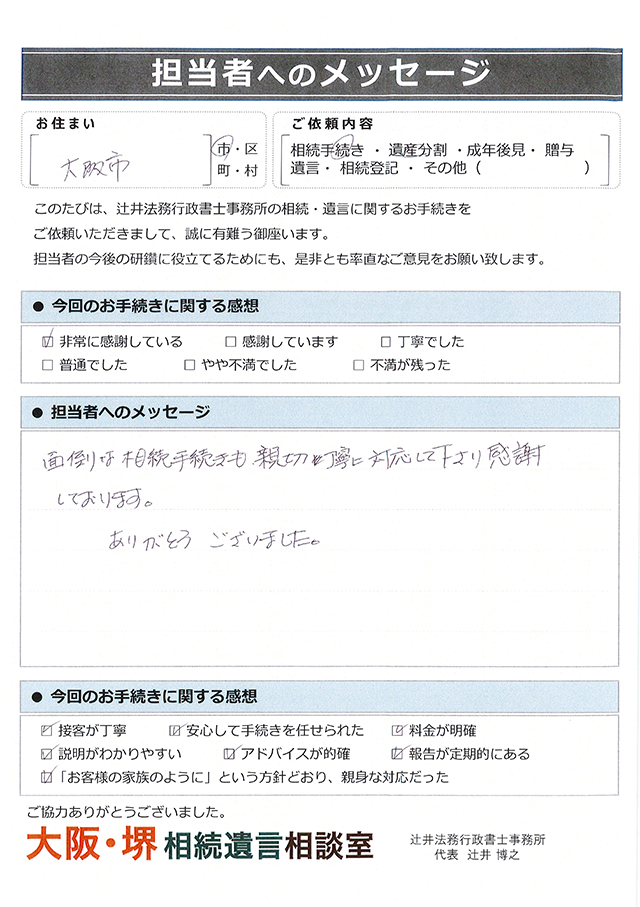 担当者へのメッセージ
お住まい
大阪市
市・区
町・村
ご依頼内容
相続手続き ・ 遺産分割 ・成年後見・ 贈与
遺言・ 相続登記 ・ その他（ ）
このたびは、辻井法務行政書士事務所の相続・遺言に関するお手続きを
ご依頼いただきまして、誠に有難う御座います。
担当者の今後の研鑽に役立てるためにも、是非とも率直なご意見をお願い致します。
● 今回のお手続きに関する感想
☑ 非常に感謝している □ 感謝しています □ 丁寧でした
□ 普通でした □ やや不満でした □ 不満が残った
● 担当者へのメッセージ
面倒な相続手続きも親切丁寧に対応して下さり感謝
しております。
ありがとう ございました。
● 今回のお手続きに関する感想
☑ 接客が丁寧 ☑ 安心して手続きを任せられた ☑ 料金が明確
☑ 説明がわかりやすい ☑ アドバイスが的確 ☑ 報告が定期的にある
☑ 「お客様の家族のように」という方針どおり、親身な対応だった
ご協力ありがとうございました。
大阪・堺 相続遺言相談室
辻井法務行政書士事務所
代表 辻井 博之